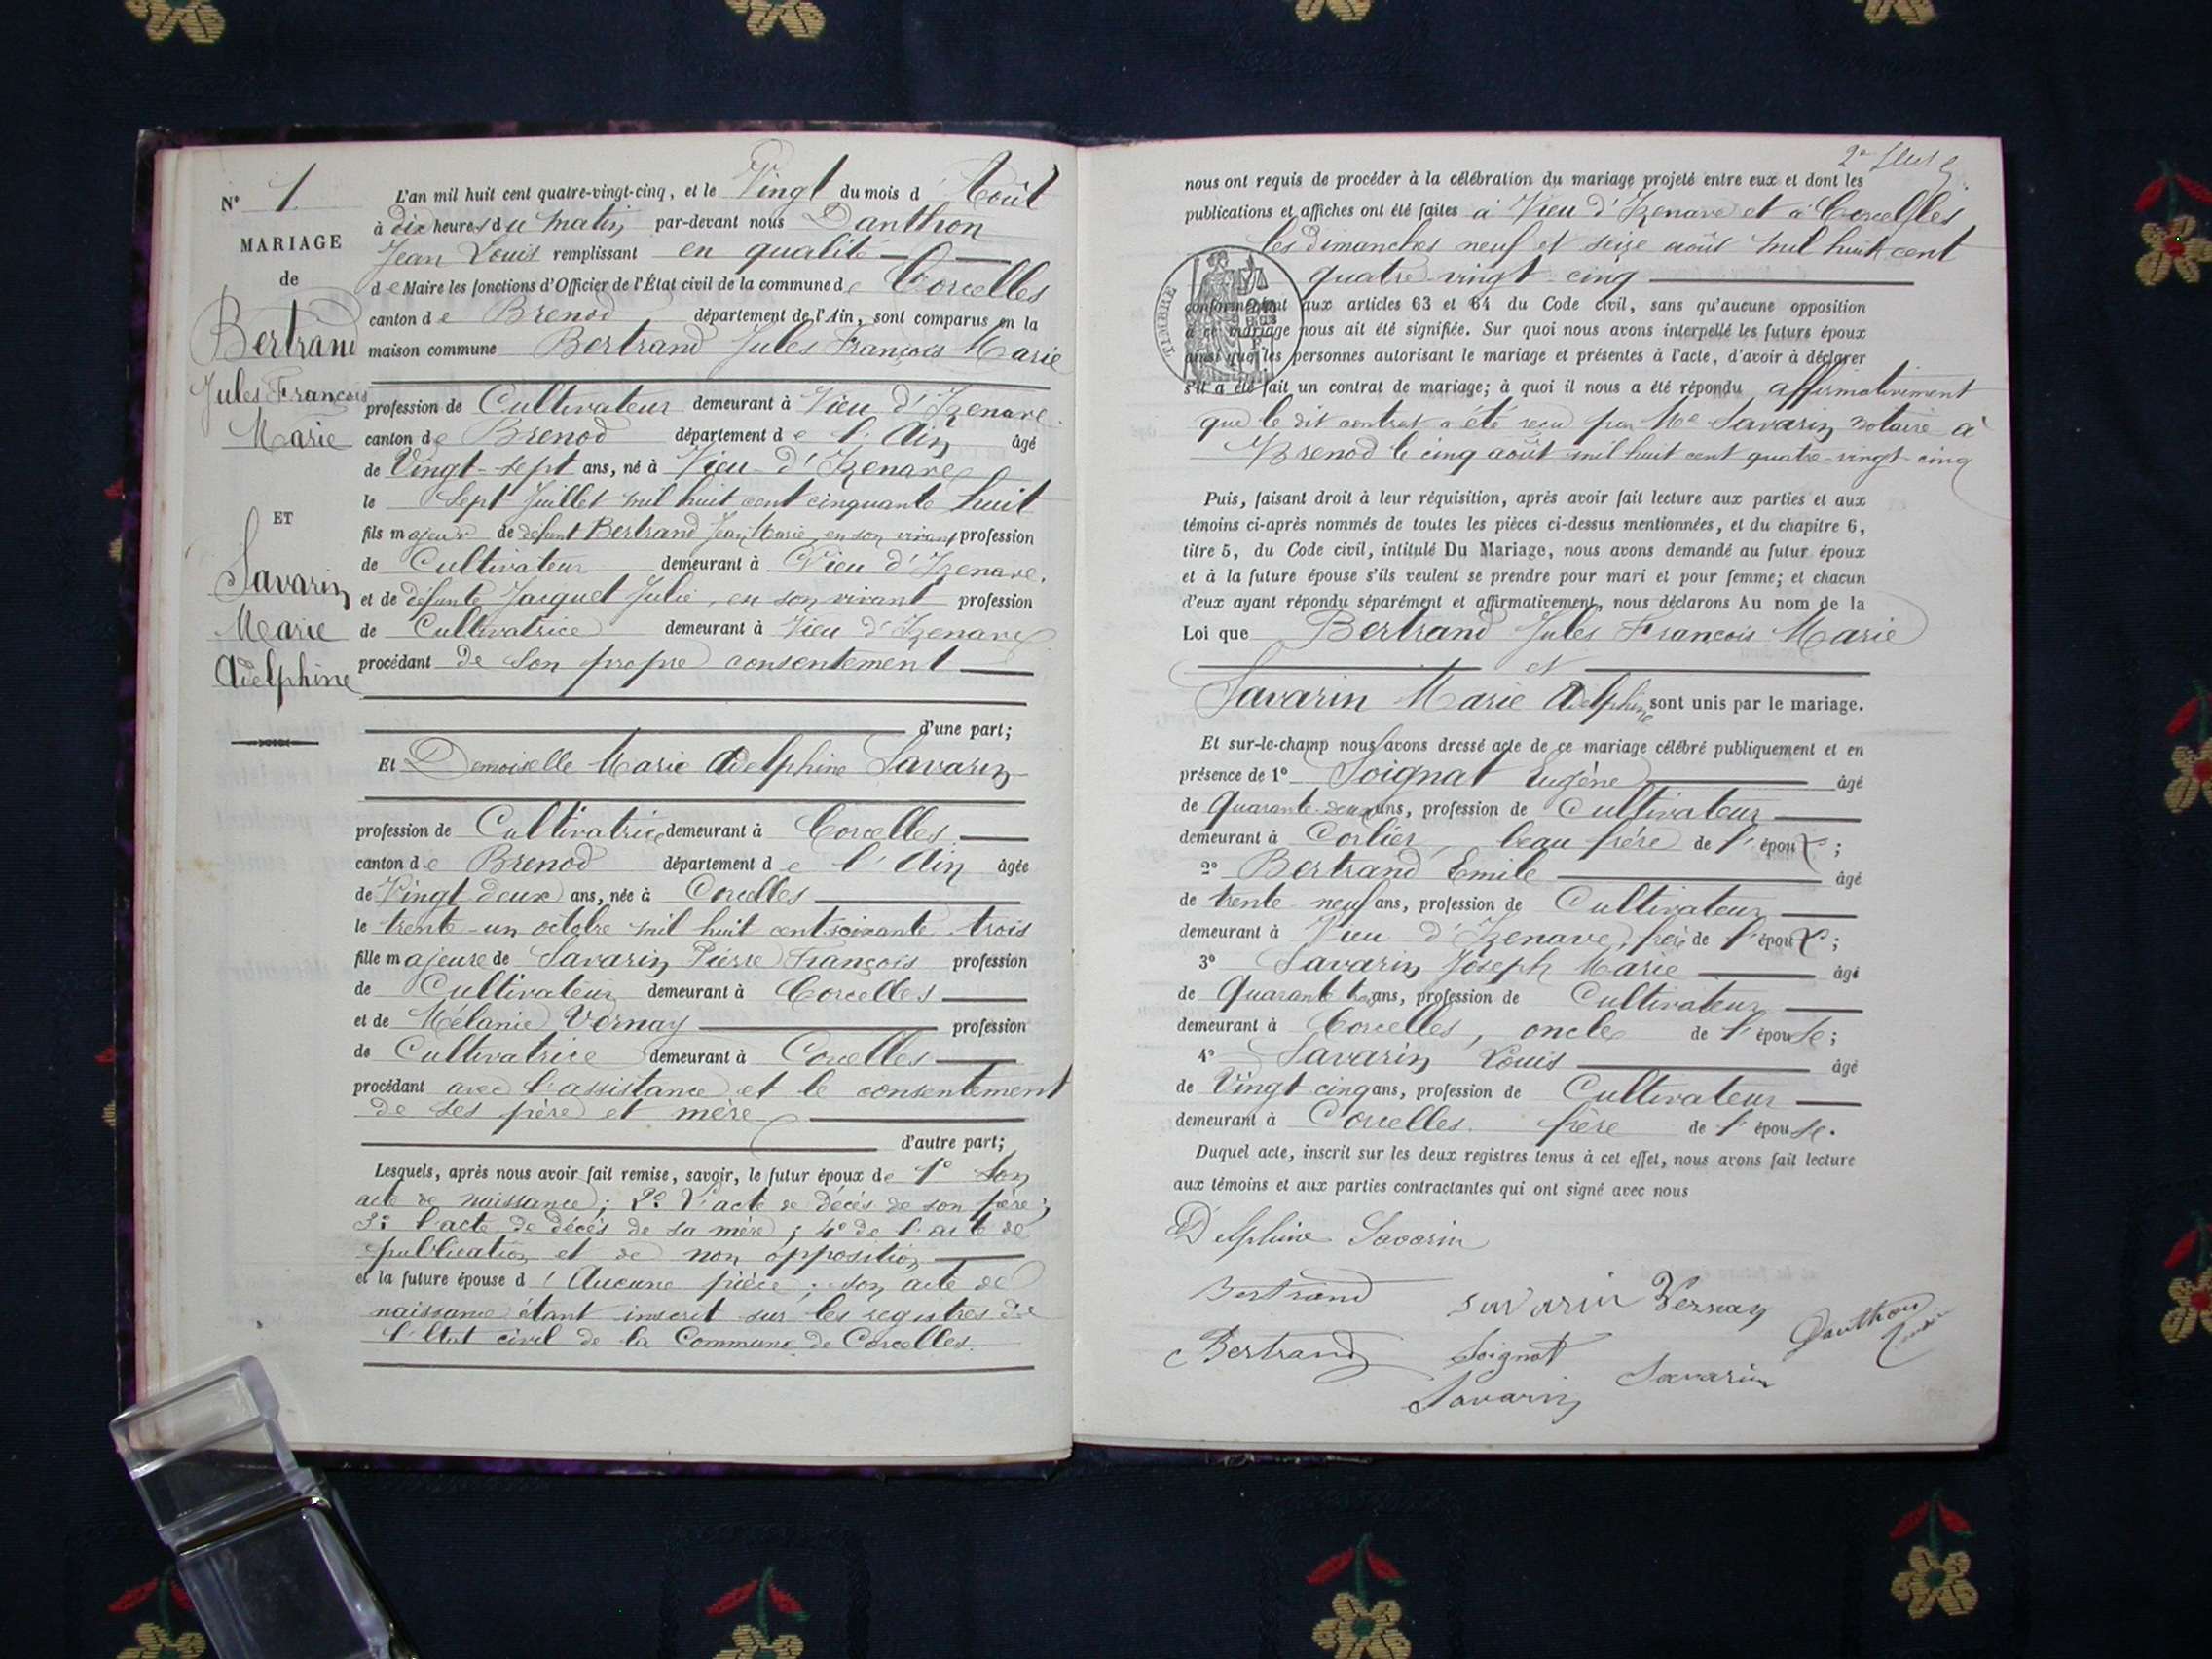 N° 1.
MARIAGE
de
Bertrand
Jules François
Marie
ET
Savarin
Marie
Adelphine
L'an mil huit cent quatre-vingt-cinq, et le Vingt du mois d'Août
à dix heures du matin par-devant nous Danthon
Jean Louis remplissant en qualité
de Maire les fonctions d'Officier de l'État civil de la commune de Corcelles
canton de Brenod département de l'Ain, sont comparus en la
maison commune Bertrand Jules François Marie
profession de Cultivateur demeurant à Vieu d'Izenave
canton de Brenod département de l'Ain âgé
de Vingt-sept ans, né à Vieu-d'Izenave
le Sept Juillet mil huit cent cinquante huit
fils majeur de défunt Bertrand Jean Marie, en son vivant profession
de Cultivateur demeurant à Vieu d'Izenave.
et de défunte Jacquet Julie, en son vivant profession
de Cultivatrice demeurant à Vieu d'Izenave
procédant de son propre consentement
d'une part;
Et Demoiselle Marie Adelphine Savarin
profession de Cultivatrice demeurant à Corcelles
canton de Brenod département de l'Ain âgée
de Vingt deux ans, née à Corcelles
le trente-un octobre mil huit cent soixante trois
fille majeure de Savarin Pierre François profession
de Cultivateur demeurant à Corcelles
et de Mélanie Vernay profession
de Cultivatrice demeurant à Corcelles
procédant avec l'assistance et le consentement
de ses père et mère
d'autre part;
Lesquels, après nous avoir fait remise, savoir, le futur époux de 1° son
acte de naissance; 2° l'acte de décès de son père;
3° l'acte de décès de sa mère; 4° de l'acte de
publication et de non opposition
et la future épouse d'Aucune pièce, son acte de
naissance étant inscrit sur les registres de
l'état civil de la Commune de Corcelles.
nous ont requis de procéder à la célébration du mariage projeté entre eux et dont les
publications et affiches ont été faites à Vieu d'Izenave et à Corcelles
les dimanches neuf et seize août mil huit cent
quatre vingt-cinq
TIMBRE
conformément aux articles 63 et 64 du Code civil, sans qu'aucune opposition
à ce mariage nous ait été signifiée. Sur quoi nous avons interpellé les futurs époux
ainsi que les personnes autorisant le mariage et présentes à l'acte, d'avoir à déclarer
s'il a été fait un contrat de mariage; à quoi il nous a été répondu affirmativement
que le dit contrat a été reçu par Me Savarin notaire à
Brenod le cinq août mil huit cent quatre-vingt-cinq
Puis, faisant droit à leur réquisition, après avoir fait lecture aux parties et aux
témoins ci-après nommés de toutes les pièces ci-dessus mentionnées, et du chapitre 6,
titre 5, du Code civil, intitulé Du Mariage, nous avons demandé au futur époux
et à la future épouse s'ils veulent se prendre pour mari et pour femme; et chacun
d'eux ayant répondu séparément et affirmativement, nous déclarons Au nom de la
Loi que Bertrand Jules François Marie
et
Savarin Marie Adelphine sont unis par le mariage.
Et sur-le-champ nous avons dressé acte de ce mariage célébré publiquement et en
présence de 1° Soignat Eugène âgé
de Quarante-deux ans, profession de Cultivateur
demeurant à Corlier, beau frère de l'époux;
2° Bertrand Emile âgé
de trente-neuf ans, profession de Cultivateur
demeurant à Vieu d'Izenave, frère de l'époux;
3° Savarin Joseph Marie âgé
de Quarante trois ans, profession de Cultivateur
demeurant à Corcelles, oncle de l'épouse;
4° Savarin Louis âgé
de Vingt cinq ans, profession de Cultivateur
demeurant à Corcelles. frère de l'épouse.
Duquel acte, inscrit sur les deux registres tenus à cet effet, nous avons fait lecture
aux témoins et aux parties contractantes qui ont signé avec nous
Delphine Savarin
Bertrand savarin Vernay
Danthon
Bertrand Soignat
Savarin Savarin